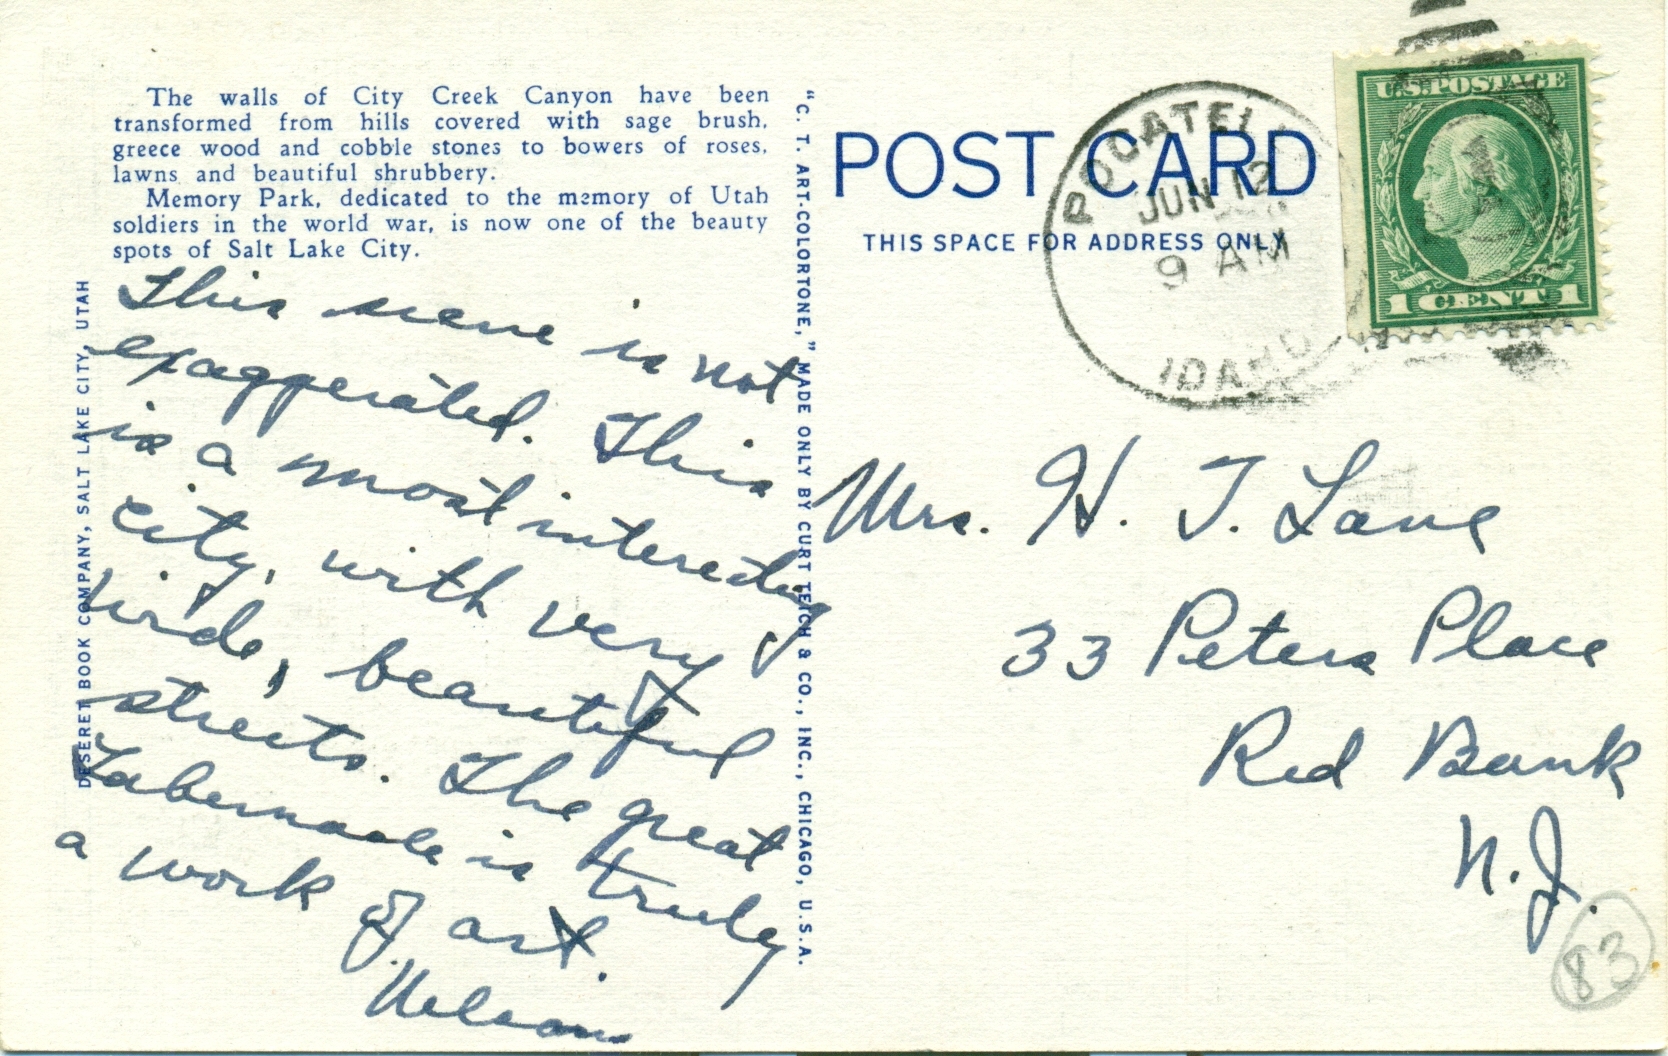 The walls of City Creek Canyon have been
transformed from hills covered with sage brush,
greece wood and cobble stones to bowers of roses,
lawns and beautiful shrubbery.
Memory Park, dedicated to the memory of Utah
soldiers in the world war, is now one of the beauty
spots of Salt Lake City.
This scene is not
exaggerated. This
is a most interesting
city, with very
wide, beautiful
streets. The great
Tabernacle is truly
a work of art.
Nelson
DESERET BOOK COMPANY, SALT LAKE CITY, UTAH
"C. T. ART-COLORTONE," MADE ONLY BY CURT TEICH & CO., INC., CHICAGO, U.S.A.
POST CARD
THIS SPACE FOR ADDRESS ONLY
POCATELLO
JUN 12
9 AM
IDAHO
U.S. POSTAGE
1 CENT 1
Mrs. H. T. Lane
33 Peters Place
Red Bank
N.J.
83